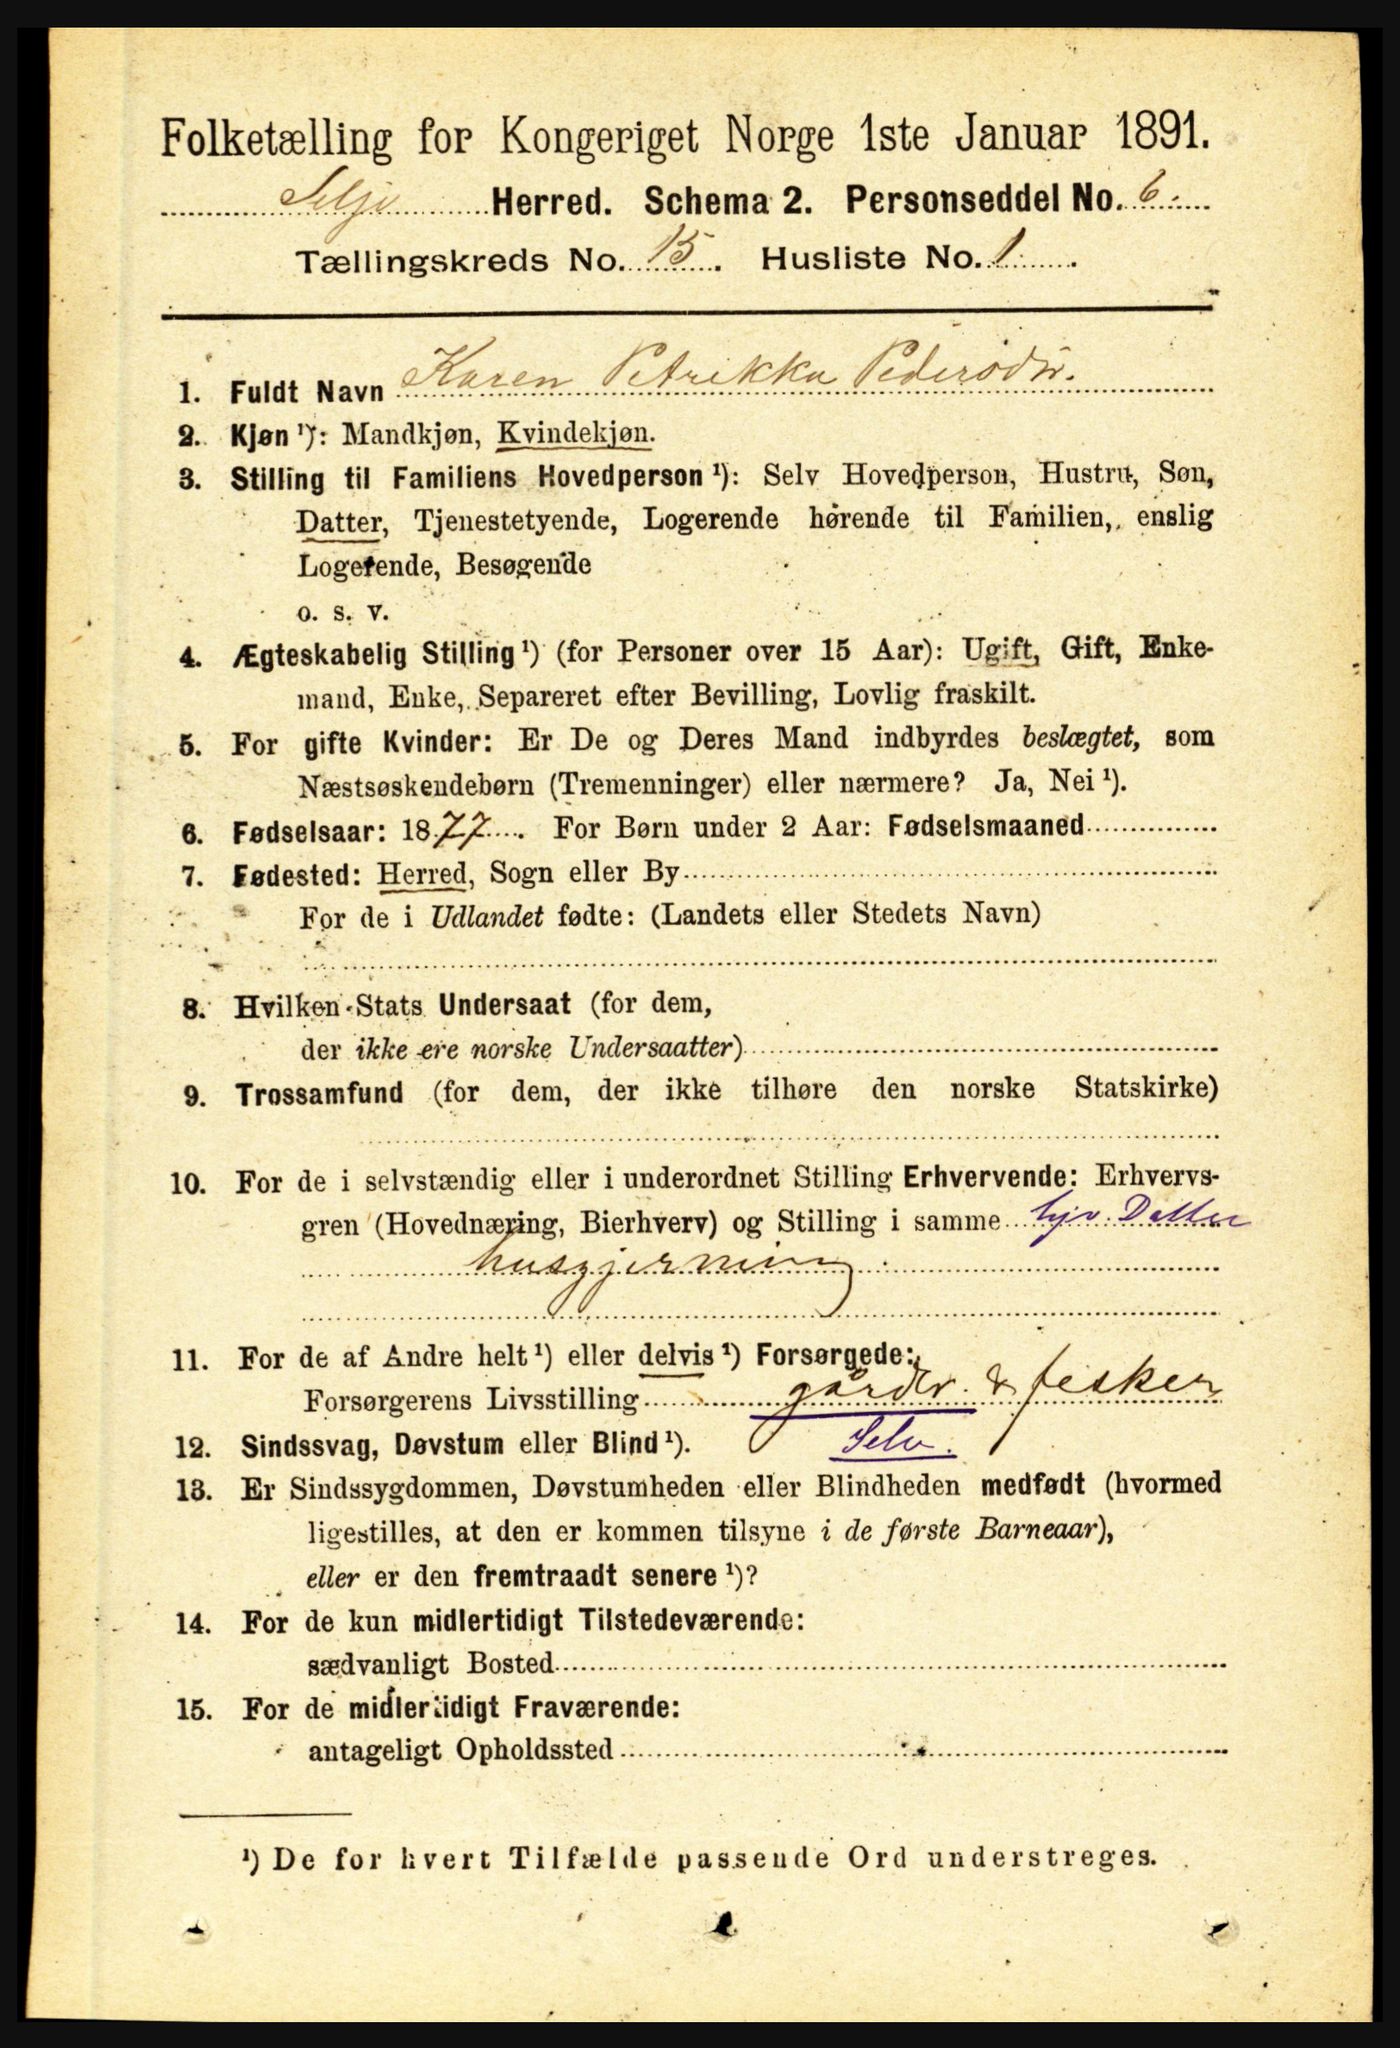 Folketælling for Kongeriget Norge 1ste Januar 1891.
Selje Herred. Schema 2. Personseddel No. 6.
Tællingskreds No. 15. Husliste No. 1.
1. Fuldt Navn Karen Petrikka Pedersdtr.
2. Kjøn ¹): Mandkjøn, Kvindekjøn.
3. Stilling til Familiens Hovedperson ¹): Selv Hovedperson, Hustru, Søn,
Datter, Tjenestetyende, Logerende hørende til Familien, enslig
Logerende, Besøgende
o. s. v.
4. Ægteskabelig Stilling ¹) (for Personer over 15 Aar): Ugift, Gift, Enke-
mand, Enke, Separeret efter Bevilling, Lovlig fraskilt.
5. For gifte Kvinder: Er De og Deres Mand indbyrdes beslægtet, som
Næstsøskendebørn (Tremenninger) eller nærmere? Ja, Nei ¹).
6. Fødselsaar: 1877. For Børn under 2 Aar: Fødselsmaaned
7. Fødested: Herred, Sogn eller By
For de i Udlandet fødte: (Landets eller Stedets Navn)
8. Hvilken Stats Undersaat (for dem,
der ikke ere norske Undersaatter)
9. Trossamfund (for dem, der ikke tilhøre den norske Statskirke)
10. For de i selvstændig eller i underordnet Stilling Erhvervende: Erhvervs-
gren (Hovednæring, Bierhverv) og Stilling i samme hjv. Datter
husgjerning
11. For de af Andre helt ¹) eller delvis ¹) Forsørgede:
Forsørgerens Livsstilling gårdbr. & fisker
12. Sindssvag, Døvstum eller Blind ¹). Selv.
13. Er Sindssygdommen, Døvstumheden eller Blindheden medfødt (hvormed
ligestilles, at den er kommen tilsyne i de første Barneaar),
eller er den fremtraadt senere ¹)?
14. For de kun midlertidigt Tilstedeværende:
sædvanligt Bosted
15. For de midlertidigt Fraværende:
antageligt Opholdssted
¹) De for hvert Tilfælde passende Ord understreges.